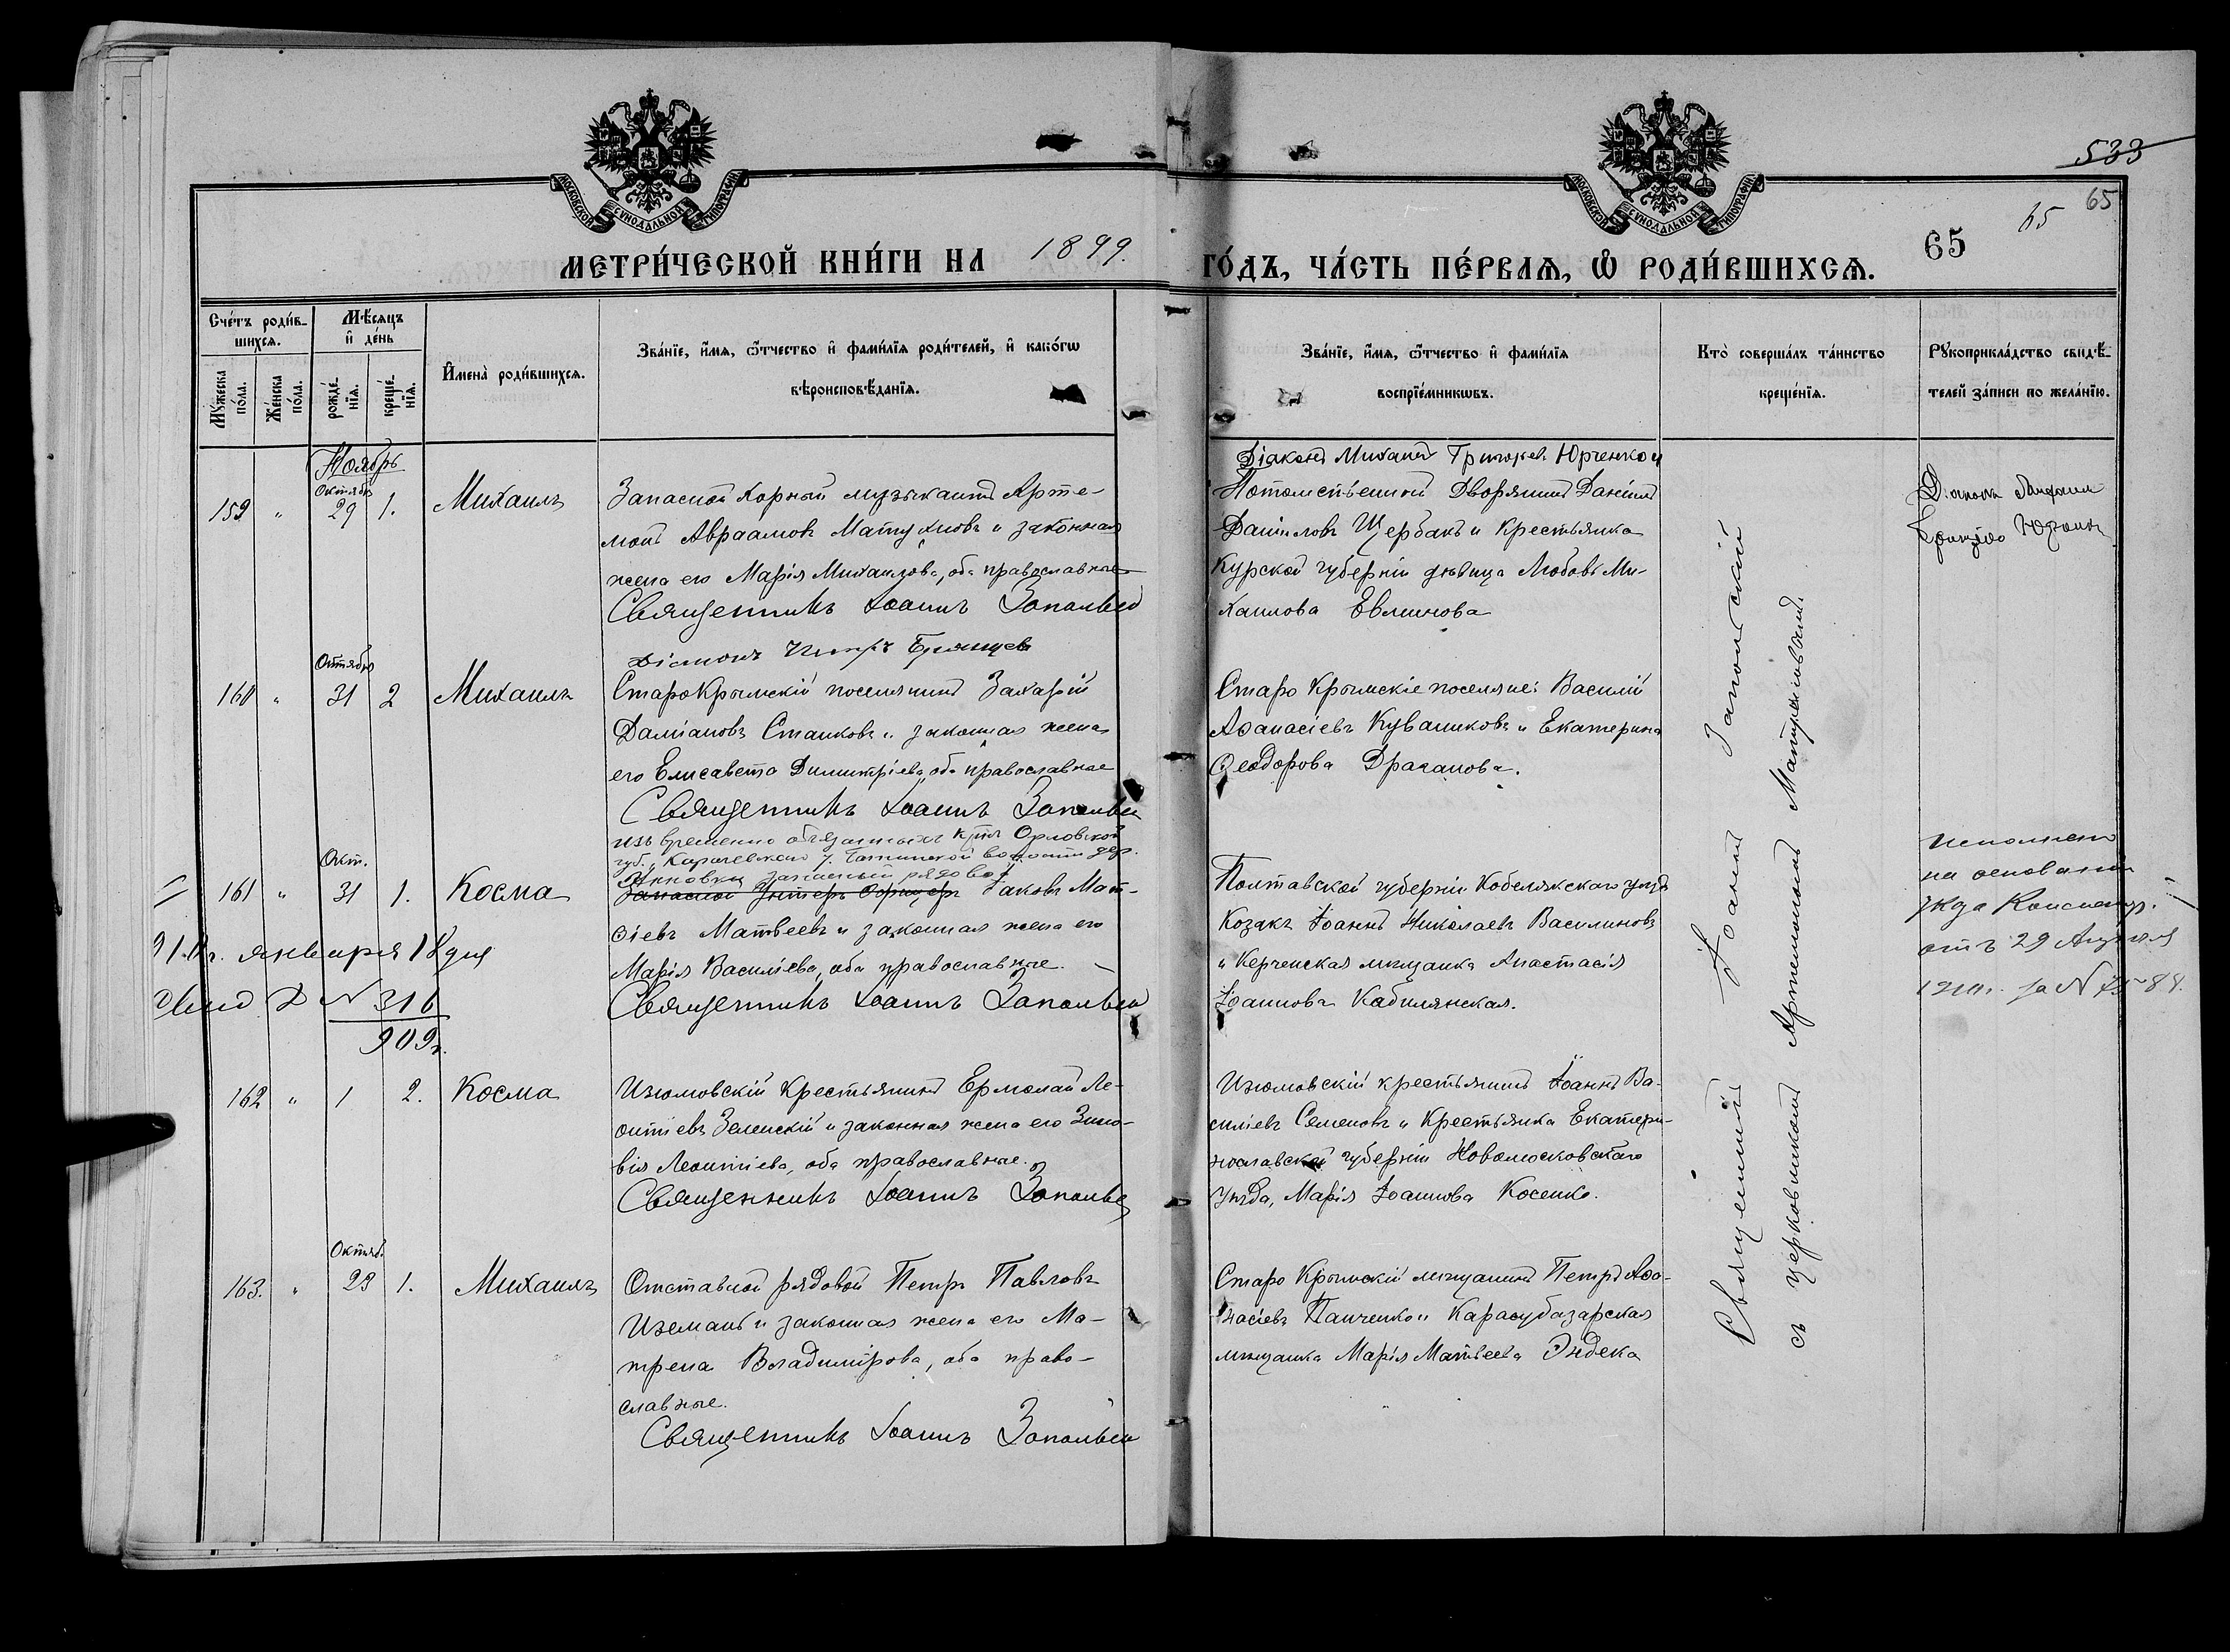 МОСКОВСКОЙ СѴНОДАЛЬНОЙ ТИПОГРАФІИ
МОСКОВСКОЙ СѴНОДАЛЬНОЙ ТИПОГРАФІИ
533
65
65
65
МЕТРИ́ЧЕСКОЙ КНИ́ГИ НА 1899.
ГО́ДЪ, ЧА́СТЬ ПЕ́РВАЯ, Ѡ РОДИ́ВШИХСЯ.
Сче́тъ роди́в-
шихся.
Мꙋ́жеска по́ла.
Же́нска по́ла.
Мѣ́сяцъ
и҆ де́нь
рожде́-нїя.
креще́-нїя.
И҆мена̀ роди́вшихся.
Зва́нїе, и҆́мя, ѻ҆́тчество и҆ фами́лїя роди́телей, и҆ како́гѡ
вѣроисповѣ́данїя.
Зва́нїе, и҆́мя, ѻ҆́тчество и҆ фами́лїя
воспрїе́мникѡвъ.
Кто̀ соверша́лъ та́инство
креще́нїя.
Рꙋкоприкла́дство свидѣ́-
телей за́писи по жела́нїю.
Ноябрь
Октябр
159 " 29 1. Михаилъ
Запасной хорный музыкантъ Арте-
монъ Авраамовъ Матухновъ и законная
жена его Марія Михаилова, оба православные
Священникъ Іоаннъ Запольск
Діаконъ Петръ Брянцевъ
Діаконъ Михаилъ Григорьев. Юрченко и
Потомственный Дворянинъ Даніилъ
Даниловъ Щербакъ и крестьянка
Курской губерніи дѣвица Любовь Ми-
хаилова Евлинова
Діаконъ Михаилъ
Юрченко
Октябр
160 " 31 2 Михаилъ
Старо Крымскій поселянинъ Захарій
Даміановъ Станковъ и законная жена
его Елисавета Димитріева, оба православные
Священникъ Іоаннъ Запольск
Старо Крымскіе поселяне: Василій
Аѳанасіевъ Куваниковъ и Екатерина
Ѳеодорова Драганова.
Окт.
161 " 31 1. Косма
изъ временно обязанныхъ крт. Орловской
губ., Карачевскаго у. волости дер.
запасный рядовой
Запасной Унтеръ Офицеръ Іаковъ Мат-
ѳіевъ Матвеевъ и законная жена его
Марія Василіева, оба православные.
Священникъ Іоаннъ Запольск
января 18 дня
№ 316
909 г.
Полтавской губерніи Кобелякскаго уѣзда
Козакъ Іоаннъ Николаевъ Василиновъ
и Керченская мѣщанка Анастасія
Іоаннова Кабилянская.
на основаніи
указа Консистор.
отъ 29 Апреля
1910 г. за № 7588.
162 " 1 2. Косма
Изюмовскій Крестьянинъ Ермолай Ле-
онтіевъ Зеленскій и законная жена его Зино-
вія Леонтіева, оба православные.
Священникъ Іоаннъ Запольск
Изюмовскій крестьянинъ Іоаннъ Ва-
силіевъ Семеновъ и Крестьянка Екатери-
нославской губерніи Новомосковскаго
уѣзда, Марія Іоаннова Косенко.
Октяб.
163. " 29 1. Михаилъ
Отставной рядовой Петръ Павловъ
Ижеманъ и законная жена его Ма-
трена Владимірова, оба право-
славные.
Священникъ Іоаннъ Запольск
Старо Крымскій мѣщанинъ Петръ Аѳа-
насіевъ Панченко и Карасубазарская
мѣщанка Марія Матвеева Эндека
Священникъ Іоаннъ Запольскій
съ церковникомъ Артемономъ